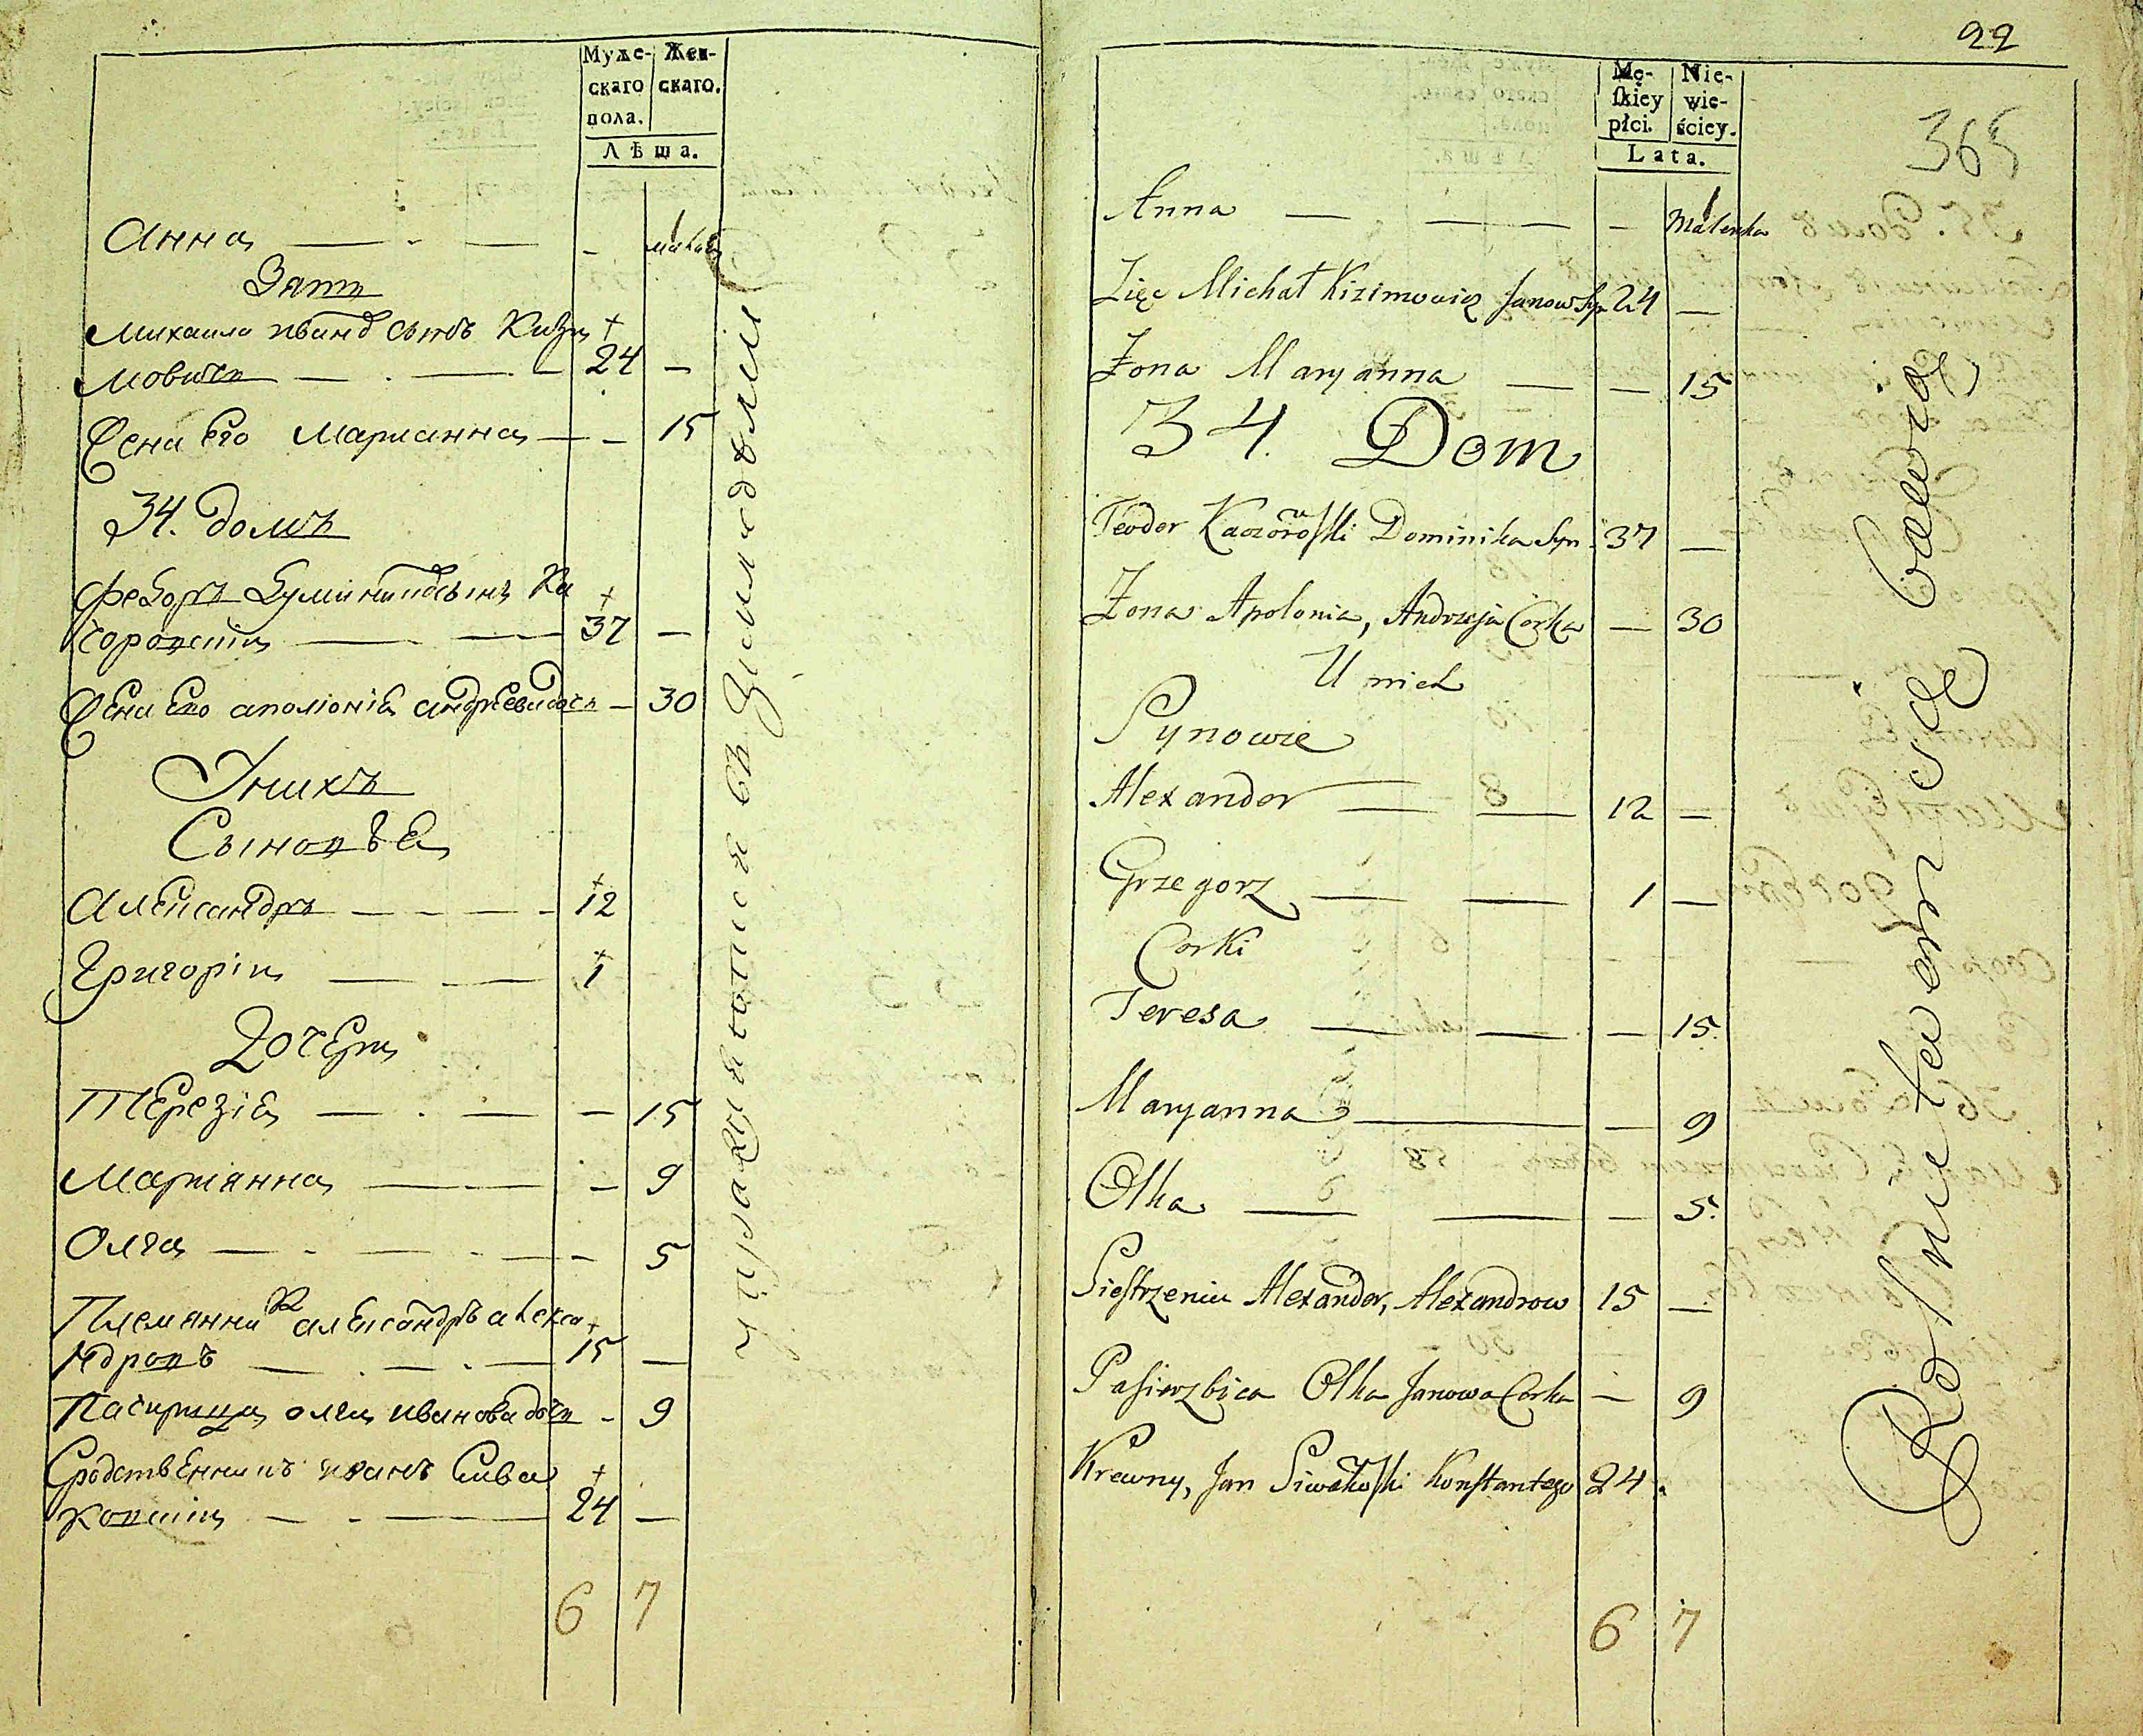 Муже-
скаго
пола.
Жен-
скаго.
Лѣта.
Анна — - — - малая
Зять
Михаила Иванов сынъ Кизи
мовичь — . — - 24 -
Жена Его Марианна — - 15
34. домъ
Федоръ Думиника сынъ Ка
чоровскій — — 37 —
Жена Его аполіонія андреева дочь - 30
Унихъ
Сыновья
Александръ — - - - 12
Григорій — — 1
Дочери
Терезія — . — - 15
Маріянна — - — - 9
Олга — - — - - 5
Племянникъ александръ алекса
ндровъ — . — . — 15 —
Пасирица олга иванова дочь - 9
Сродственникъ иванъ Сива
ковскій — - — 24 —
6 7
упражняются въ Земледѣліи
22
365
Mę-
ſkiey
płci.
Nie-
wie-
ściey.
Lata.
Anna — — - Małenka
Zięc Michał Kizimowicz Janow Syn 24 —
Żona Maryanna — — 15
34. Dom
Teodor Kaczorowſki Dominika Syn 37 —
Żona Apolonia, Andrzeja Corka — 30
U nich
Synowie
Alexander — — 12 —
Grzegorz — — 1 —
Corki
Teresa — — — 15.
Maryanna — — 9
Olha — — — 5.
Sieſtrzeniec Alexander, Alexandrow 15 —
Paſierzbica Olha Janowa Corka — 9
Krewny, Jan Siwakoſki Konſtantego 24.
6 7
Rolnictwem się bawią